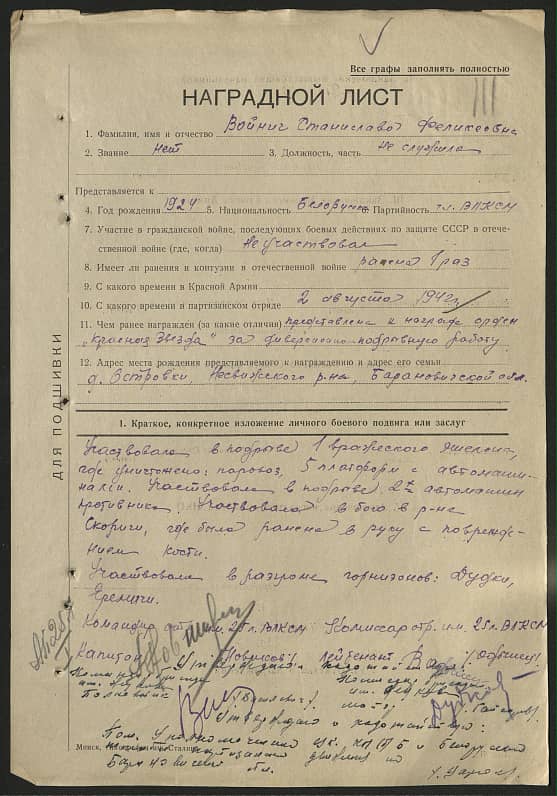 Все графы заполнять полностью
III
НАГРАДНОЙ ЛИСТ
1. Фамилия, имя и отчество Войнич Станислава Феликсовна
2. Звание нет 3. Должность, часть не служила
Представляется к
4. Год рождения 1924 5. Национальность Белоруска Партийность чл. ВЛКСМ
7. Участие в гражданской войне, последующих боевых действиях по защите СССР в отече-
ственной войне (где, когда) Не участвовала
8. Имеет ли ранения и контузии в отечественной войне ранена 1 раз
9. С какого времени в Красной Армии
10. С какого времени в партизанском отряде 2 августа 1942 г.
11. Чем ранее награжден (за какие отличия) представлена к награде орден
"Красная Звезда" за диверсионно-подрывную работу
12. Адрес места рождения представляемого к награждению и адрес его семьи
д. Островки, Несвижского р-на, Барановичской обл.
ДЛЯ ПОДШИВКИ
1. Краткое, конкретное изложение личного боевого подвига или заслуг
Участвовала в подрыве 1 вражеского эшелона,
где уничтожено: паровоз, 5 платформ с автомаши-
нами. Участвовала в подрыве 2х автомашин
противника. Участвовала в бою в р-не
Скориги, где была ранена в руку с поврежде-
нием кости.
Участвовала в разгроме горнизонов: Дудки,
Еремичи.
Командир отр. им. 25 л. ВЛКСМ Комиссар отр. им. 25 л. ВЛКСМ
Капитан лейтенант
Утверждаю
Полковник
Утверждаю ходатайство:
Пом. Уполномоченный ЦК КП(б)Б и Белорусского
партизанского движения по
Барановичской обл.